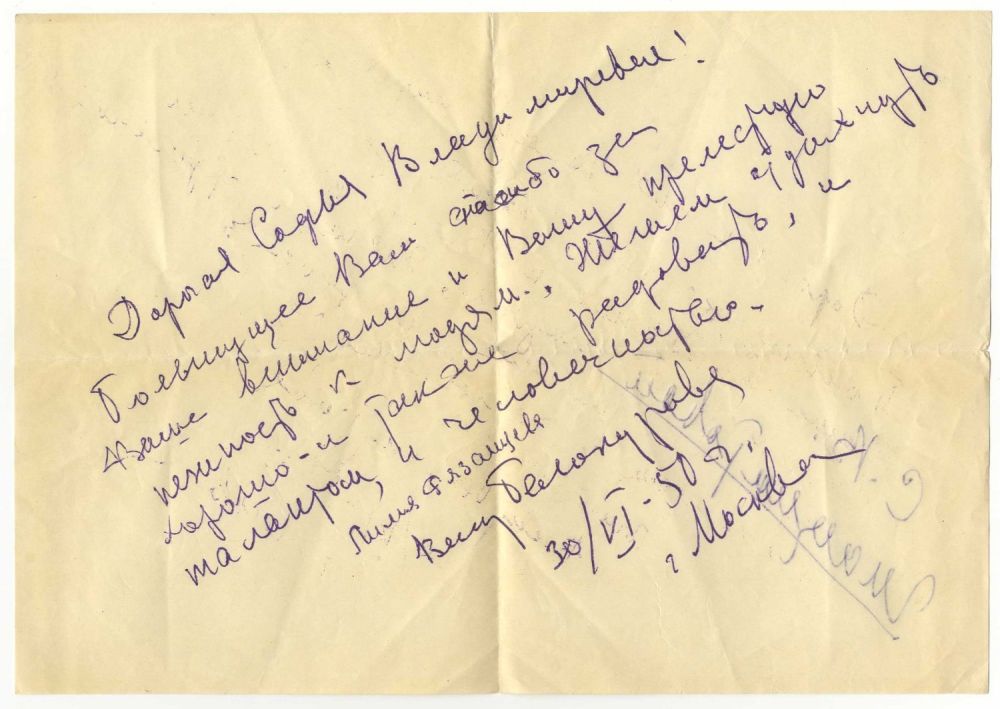 Дорогая Софья Владимировна!
Большущее Вам спасибо за
Ваше внимание и Вашу прелестную
нежность к людям. Желаем отдохнуть
хорошо и также радовать, и
талантом, и человечностью.
Лилия Рязанцева
Белокурова
30/VI-50 г.
г. Москва